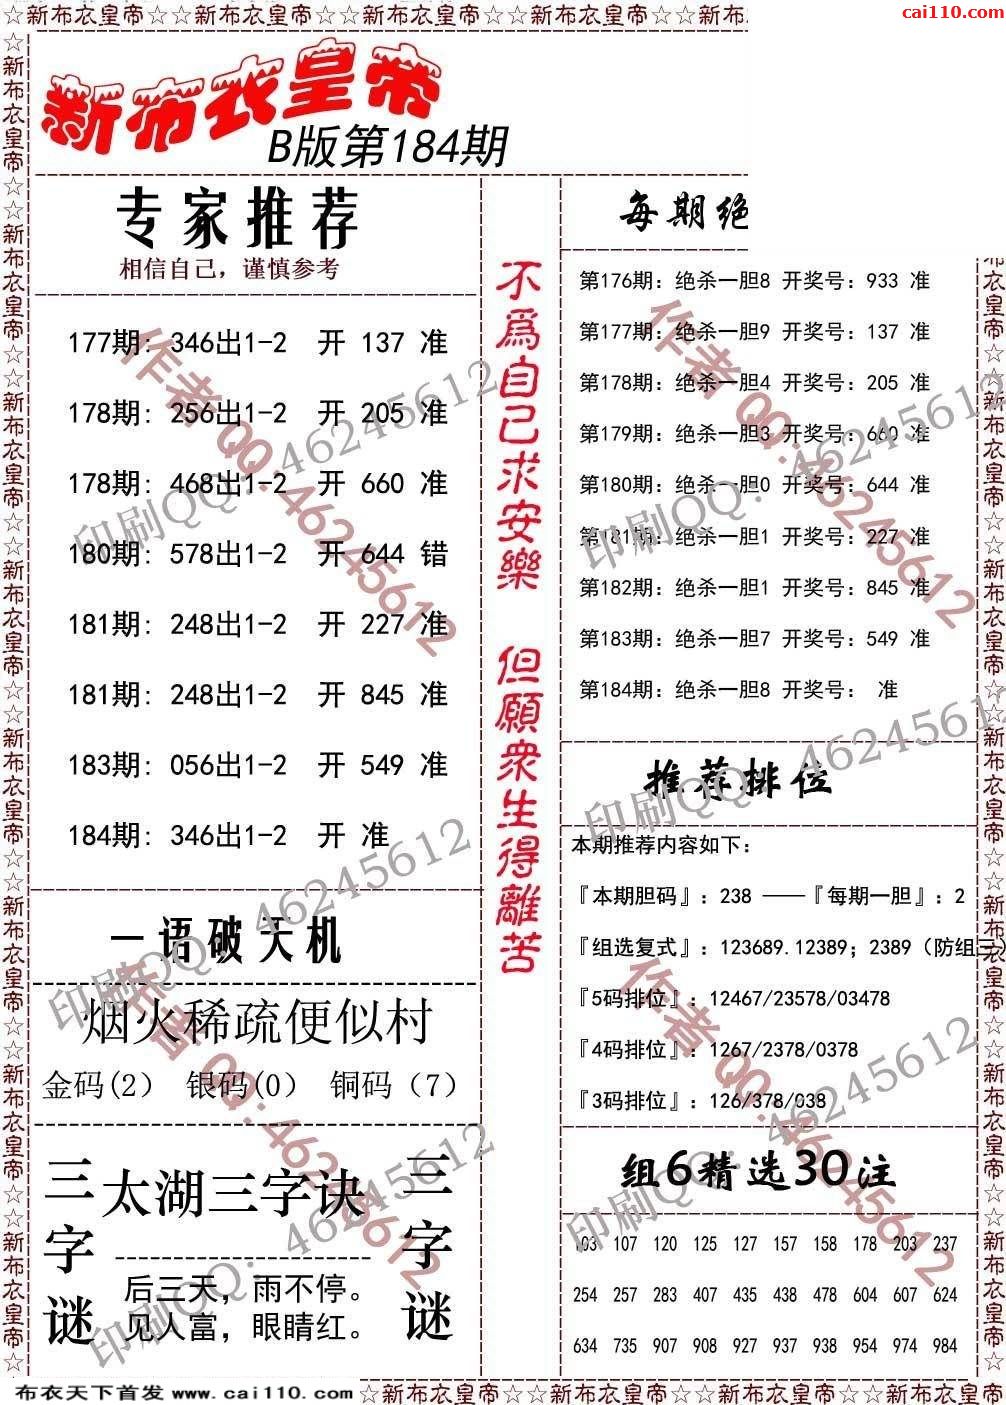 ☆新布衣皇帝☆☆新布衣皇帝☆☆新布衣皇帝☆☆新布衣皇帝☆☆新布
cai110.com
新布衣皇帝
B版第184期
专家推荐
相信自己，谨慎参考
177期: 346出1-2 开 137 准
178期: 256出1-2 开 205 准
178期: 468出1-2 开 660 准
180期: 578出1-2 开 644 错
181期: 248出1-2 开 227 准
181期: 248出1-2 开 845 准
183期: 056出1-2 开 549 准
184期: 346出1-2 开 准
一语破天机
烟火稀疏便似村
金码(2) 银码(0) 铜码（7）
三字谜
太湖三字诀
后三天，雨不停。
见人富，眼睛红。
三字谜
不為自己求安樂 但願衆生得離苦
每期绝
第176期: 绝杀一胆8 开奖号: 933 准
第177期: 绝杀一胆9 开奖号: 137 准
第178期: 绝杀一胆4 开奖号: 205 准
第179期: 绝杀一胆3 开奖号: 660 准
第180期: 绝杀一胆0 开奖号: 644 准
第181期: 绝杀一胆1 开奖号: 227 准
第182期: 绝杀一胆1 开奖号: 845 准
第183期: 绝杀一胆7 开奖号: 549 准
第184期: 绝杀一胆8 开奖号: 准
推荐排位
本期推荐内容如下:
『本期胆码』: 238 ——『每期一胆』: 2
『组选复式』: 123689.12389; 2389（防组三）
『5码排位』: 12467/23578/03478
『4码排位』: 1267/2378/0378
『3码排位』: 126/378/038
组6精选30注
103 107 120 125 127 157 158 178 203 237
254 257 283 407 435 438 478 604 607 624
634 735 907 908 927 937 938 954 974 984
作者QQ:46245612
印刷QQ: 46245612
作者QQ:46245612
印刷QQ: 46245612
印刷QQ: 46245612
印刷QQ: 46245612
作者QQ:46245612
印刷QQ: 46245612
作者QQ:46245612
印刷QQ: 46245612
布衣天下首发 www.cai110.com
☆新布衣皇帝☆☆新布衣皇帝☆☆新布衣皇帝☆☆新布衣皇帝☆